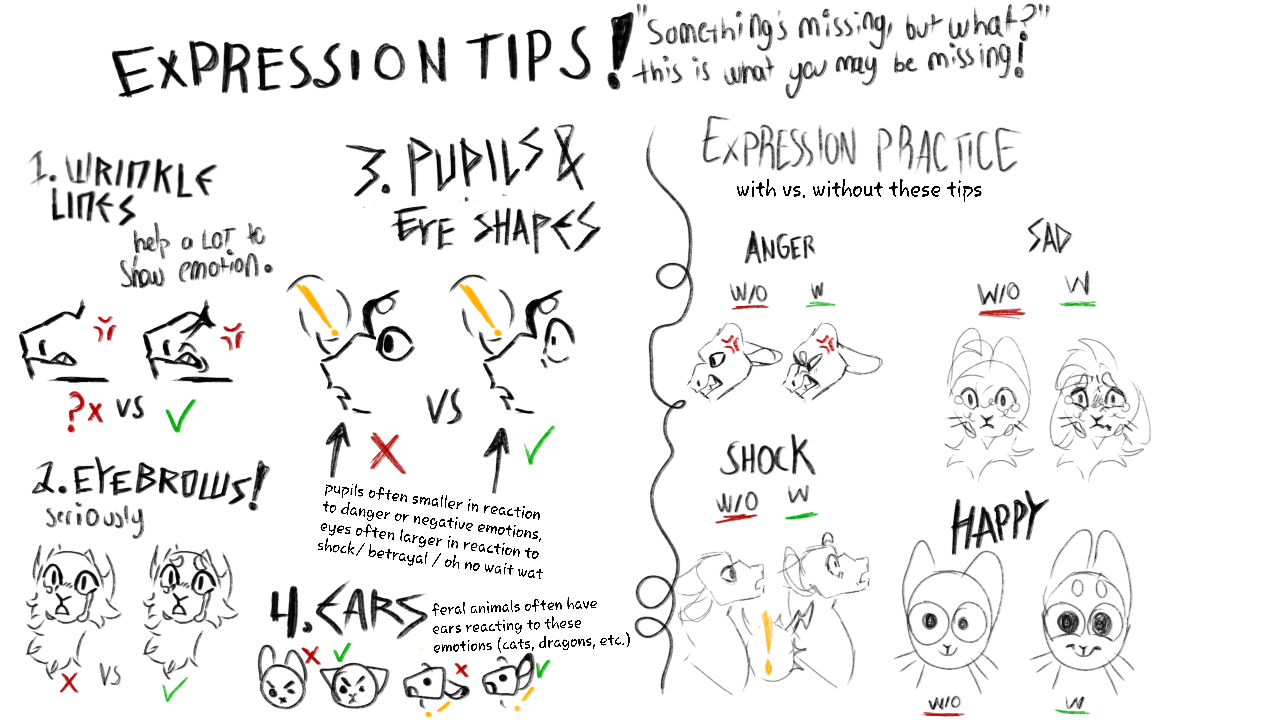 EXPRESSION TIPS!
"Something's missing, but what?"
this is what you may be missing!
1. WRINKLE
LINES
help a LOT to
show emotion.
?x vs ✓
2. EYEBROWS!
seriously
X vs ✓
3. PUPILS &
EYE SHAPES
VS
X ✓
pupils often smaller in reaction
to danger or negative emotions,
eyes often larger in reaction to
shock/ betrayal / oh no wait wat
4. EARS
feral animals often have
ears reacting to these
emotions (cats, dragons, etc.)
EXPRESSION PRACTICE
with vs. without these tips
ANGER
W/O W
SAD
W/O W
SHOCK
W/O W
HAPPY
W/O W